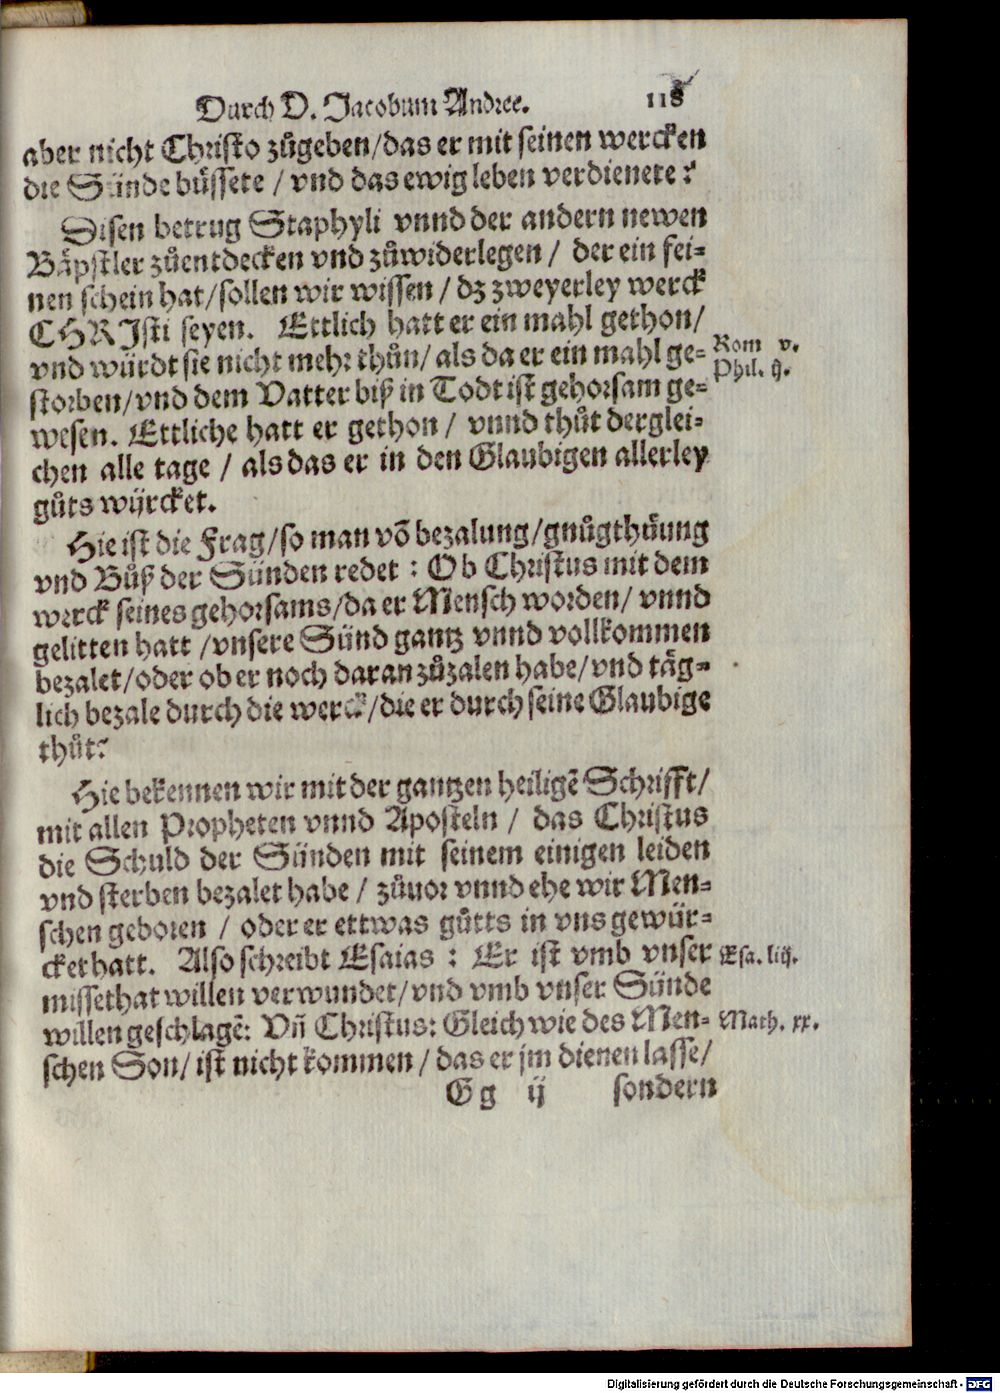 Durch D. Jacobum Andree. 118
aber nicht Christo zůgeben/das er mit seinen wercken
die Sünde bůssete / vnd das ewig leben verdienete?
Disen betrug Staphyli vnnd der andern newen
Bäpstler zůentdecken vnd zůwiderlegen / der ein fei-
nen schein hat/sollen wir wissen / dz zweyerley werck
CHRJsti seyen. Ettlich hatt er ein mahl gethon/
vnd würdt sie nicht mehr thůn/ als da er ein mahl ge- Rom v.
storben/vnd dem Vatter biß in Todt ist gehorsam ge- Phil. ij.
wesen. Ettliche hatt er gethon / vnnd thůt derglei-
chen alle tage / als das er in den Glaubigen allerley
gůts würcket.
Hie ist die Frag/so man võ bezalung/gnůgthůung
vnd Bůß der Sünden redet : Ob Christus mit dem
werck seines gehorsams/da er Mensch worden/ vnnd
gelitten hatt /vnsere Sünd gantz vnnd vollkommen
bezalet/oder ob er noch daran zůzalen habe/vnd täg-
lich bezale durch die werck/die er durch seine Glaubige
thůt?
Hie bekennen wir mit der gantzen heiligẽ Schrifft/
mit allen Propheten vnnd Aposteln / das Christus
die Schuld der Sünden mit seinem einigen leiden
vnd sterben bezalet habe / zůuor vnnd ehe wir Men-
schen geboren / oder er ettwas gůtts in vns gewür-
cket hatt. Also schreibt Esaias : Er ist vmb vnser Esa. liij.
missethat willen verwundet/vnd vmb vnser Sünde
willen geschlagẽ: Vñ Christus: Gleich wie des Men- Math. xx.
schen Son/ ist nicht kommen / das er jm dienen lasse/
Gg ij sondern
Digitalisierung gefördert durch die Deutsche Forschungsgemeinschaft - DFG